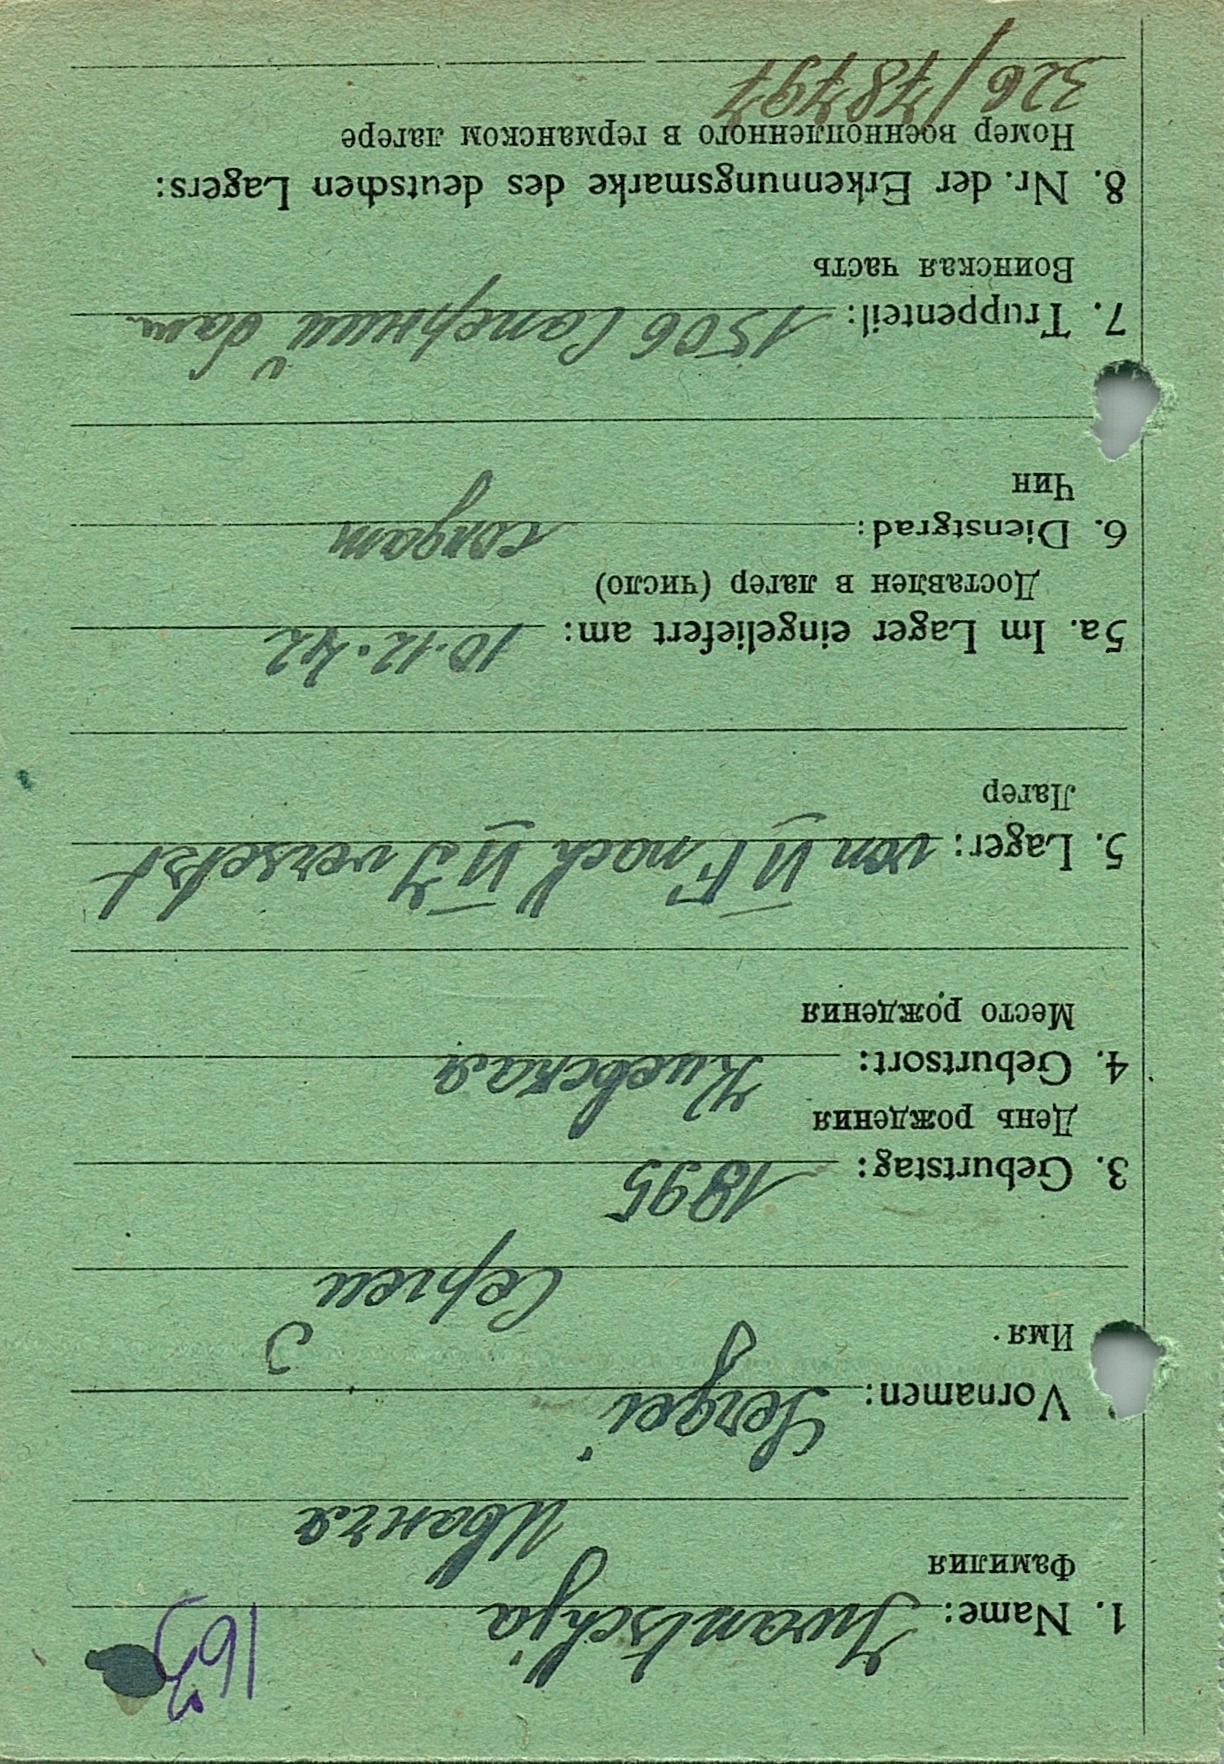 163
1. Name: Iwantschja
Фамилия Иванчя
Vornamen: Sergei
Имя. Сергеи
3. Geburtstag: 1895
День рождения
4. Geburtsort: Киевская
Место рождения
5. Lager: von VI F nach VI J versetzt
Лагер
5a. Im Lager eingeliefert am: 10.12.42
Доставлен в лагер (число)
6. Dienstgrad: солдат
Чин
7. Truppenteil: 1506 Саперний бат.
Воинская часть
8. Nr. der Erkennungsmarke des deutschen Lagers:
Номер военнопленного в германском лагере
326/78797